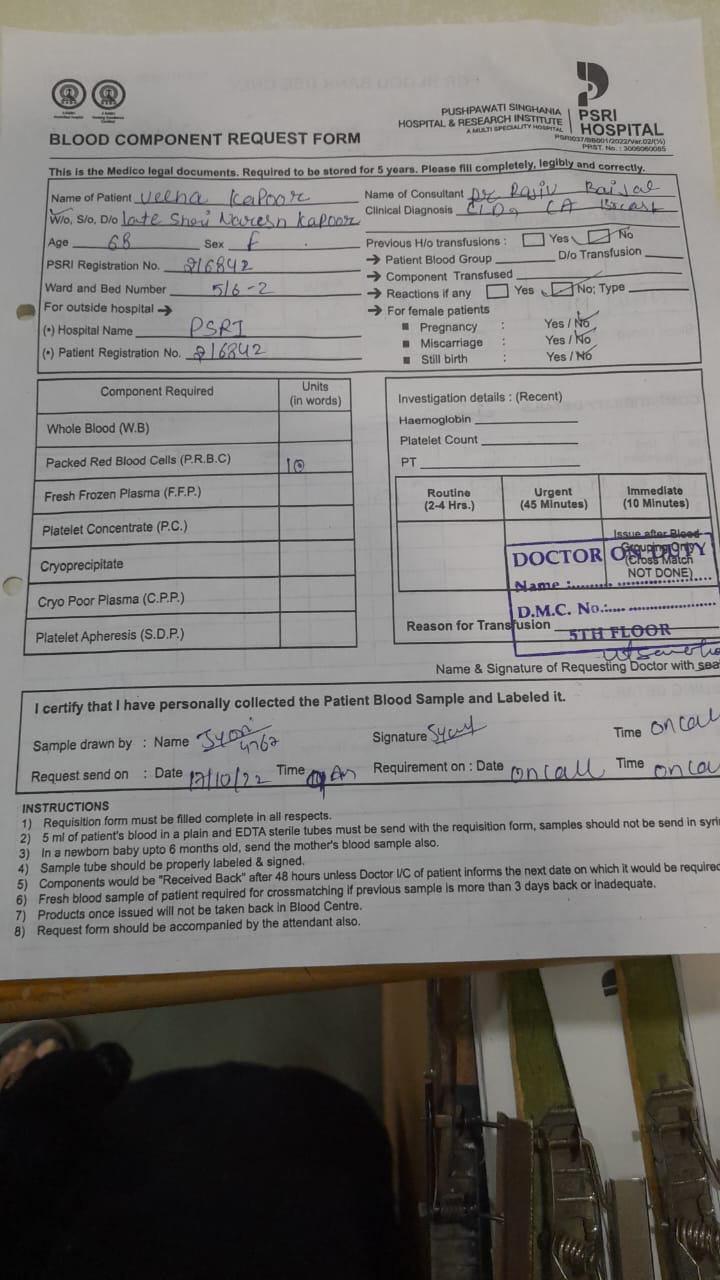 PUSHPAWATI SINGHANIA
HOSPITAL & RESEARCH INSTITUTE
A MULTI SPECIALITY HOSPITAL
PSRI
HOSPITAL
PSRI037/BB001/2022/Ver.02/(½)
PRST. No. : 3006060085
BLOOD COMPONENT REQUEST FORM
This is the Medico legal documents. Required to be stored for 5 years. Please fill completely, legibly and correctly.
Name of Patient Veena Kapoor
W/o, S/o, D/o late Shri Naresh Kapoor
Age 68 Sex F
PSRI Registration No. 216842
Ward and Bed Number 5/6-2
For outside hospital →
(•) Hospital Name PSRI
(•) Patient Registration No. 216842
Name of Consultant Dr Rajiv Baijal
Clinical Diagnosis CLD, CA Breast
Previous H/o transfusions : Yes No
→ Patient Blood Group D/o Transfusion
→ Component Transfused
→ Reactions if any Yes No; Type
→ For female patients
■ Pregnancy : Yes / No
■ Miscarriage : Yes / No
■ Still birth : Yes / No
Component Required Units (in words)
Whole Blood (W.B)
Packed Red Blood Cells (P.R.B.C)
Fresh Frozen Plasma (F.F.P.)
Platelet Concentrate (P.C.)
Cryoprecipitate
Cryo Poor Plasma (C.P.P.)
Platelet Apheresis (S.D.P.)
Investigation details : (Recent)
Haemoglobin
Platelet Count
PT
Routine (2-4 Hrs.) Urgent (45 Minutes) Immediate (10 Minutes)
Issue after Blood
Grouping Only
(Cross Match
NOT DONE)
DOCTOR ON DUTY
Name :
D.M.C. No.:
5TH FLOOR
Reason for Transfusion
Name & Signature of Requesting Doctor with sea
I certify that I have personally collected the Patient Blood Sample and Labeled it.
Sample drawn by : Name Jyoti 4767 Signature Time on call
Request send on : Date 17/10/22 Time Requirement on : Date on call Time on ca
INSTRUCTIONS
1) Requisition form must be filled complete in all respects.
2) 5 ml of patient's blood in a plain and EDTA sterile tubes must be send with the requisition form, samples should not be send in syri
3) In a newborn baby upto 6 months old, send the mother's blood sample also.
4) Sample tube should be properly labeled & signed.
5) Components would be "Received Back" after 48 hours unless Doctor I/C of patient informs the next date on which it would be require
6) Fresh blood sample of patient required for crossmatching if previous sample is more than 3 days back or inadequate.
7) Products once issued will not be taken back in Blood Centre.
8) Request form should be accompanied by the attendant also.